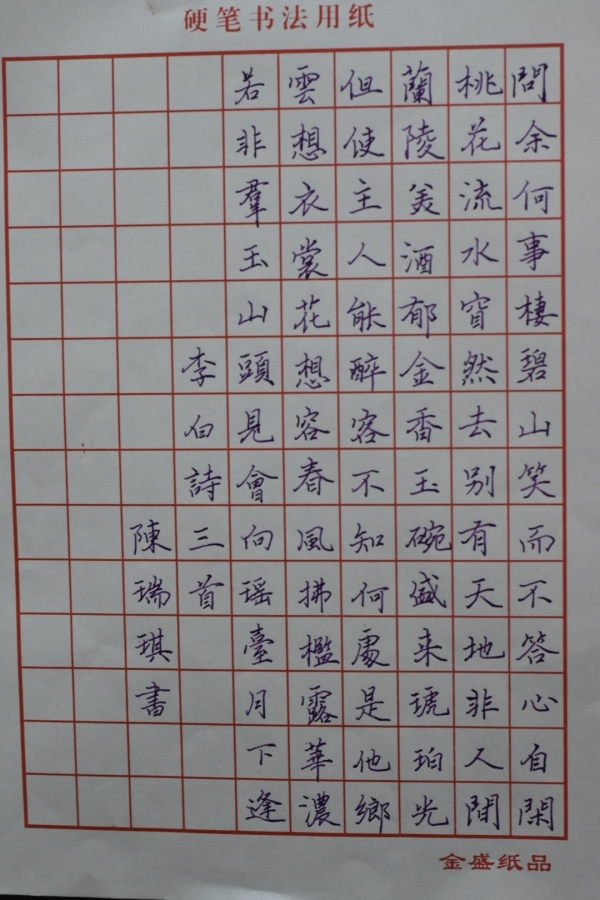 硬笔书法用纸
問余何事棲碧山笑而不答心自閑
桃花流水窅然去别有天地非人間
蘭陵美酒郁金香玉碗盛来琥珀光
但使主人能醉客不知何處是他鄉
雲想衣裳花想容春風拂檻露華濃
若非羣玉山頭見會向瑶臺月下逢
李白詩三首
陳瑞琪書
金盛纸品